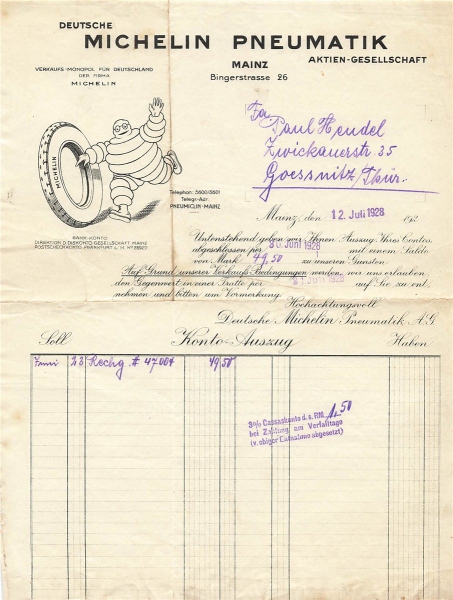 DEUTSCHE
MICHELIN PNEUMATIK
AKTIEN-GESELLSCHAFT
VERKAUFS-MONOPOL FÜR DEUTSCHLAND
DER FIRMA
MICHELIN
MAINZ
Bingerstrasse 26
Fa.
Paul Hendel
Zwickauerstr. 35
Goessnitz/Thür.
MICHELIN
Telephon: 5600/5601
Telegr.-Adr.:
PNEUMICLIN-MAINZ
BANK-KONTO:
DIREKTION D. DISKONTO GESELLSCHAFT MAINZ
POSTSCHECKKONTO: FRANKFURT a. M. No
Mainz, den 12. Juli 1928 192
Untenstehend geben wir Ihnen Auszug Ihres Contos,
abgeschlossen per 30. Juni 1928 mit einem Saldo
von Mark 49,50 zu unseren Gunsten.
Auf Grund unserer Verkaufs-Bedingungen werden wir uns erlauben
den Gegenwert in einer Tratte per Juli 1928 auf Sie zu ent-
nehmen und bitten um Vormerkung.
Hochachtungsvoll
Deutsche Michelin-Pneumatik A.G.
Soll Konto-Auszug Haben
Juni 23 Rechg # 47004 49 50
3% Cassaskonto d. s. RM. 1.50
bei Zahlung am Verfalltage
(v. obiger Entnahme abgesetzt)